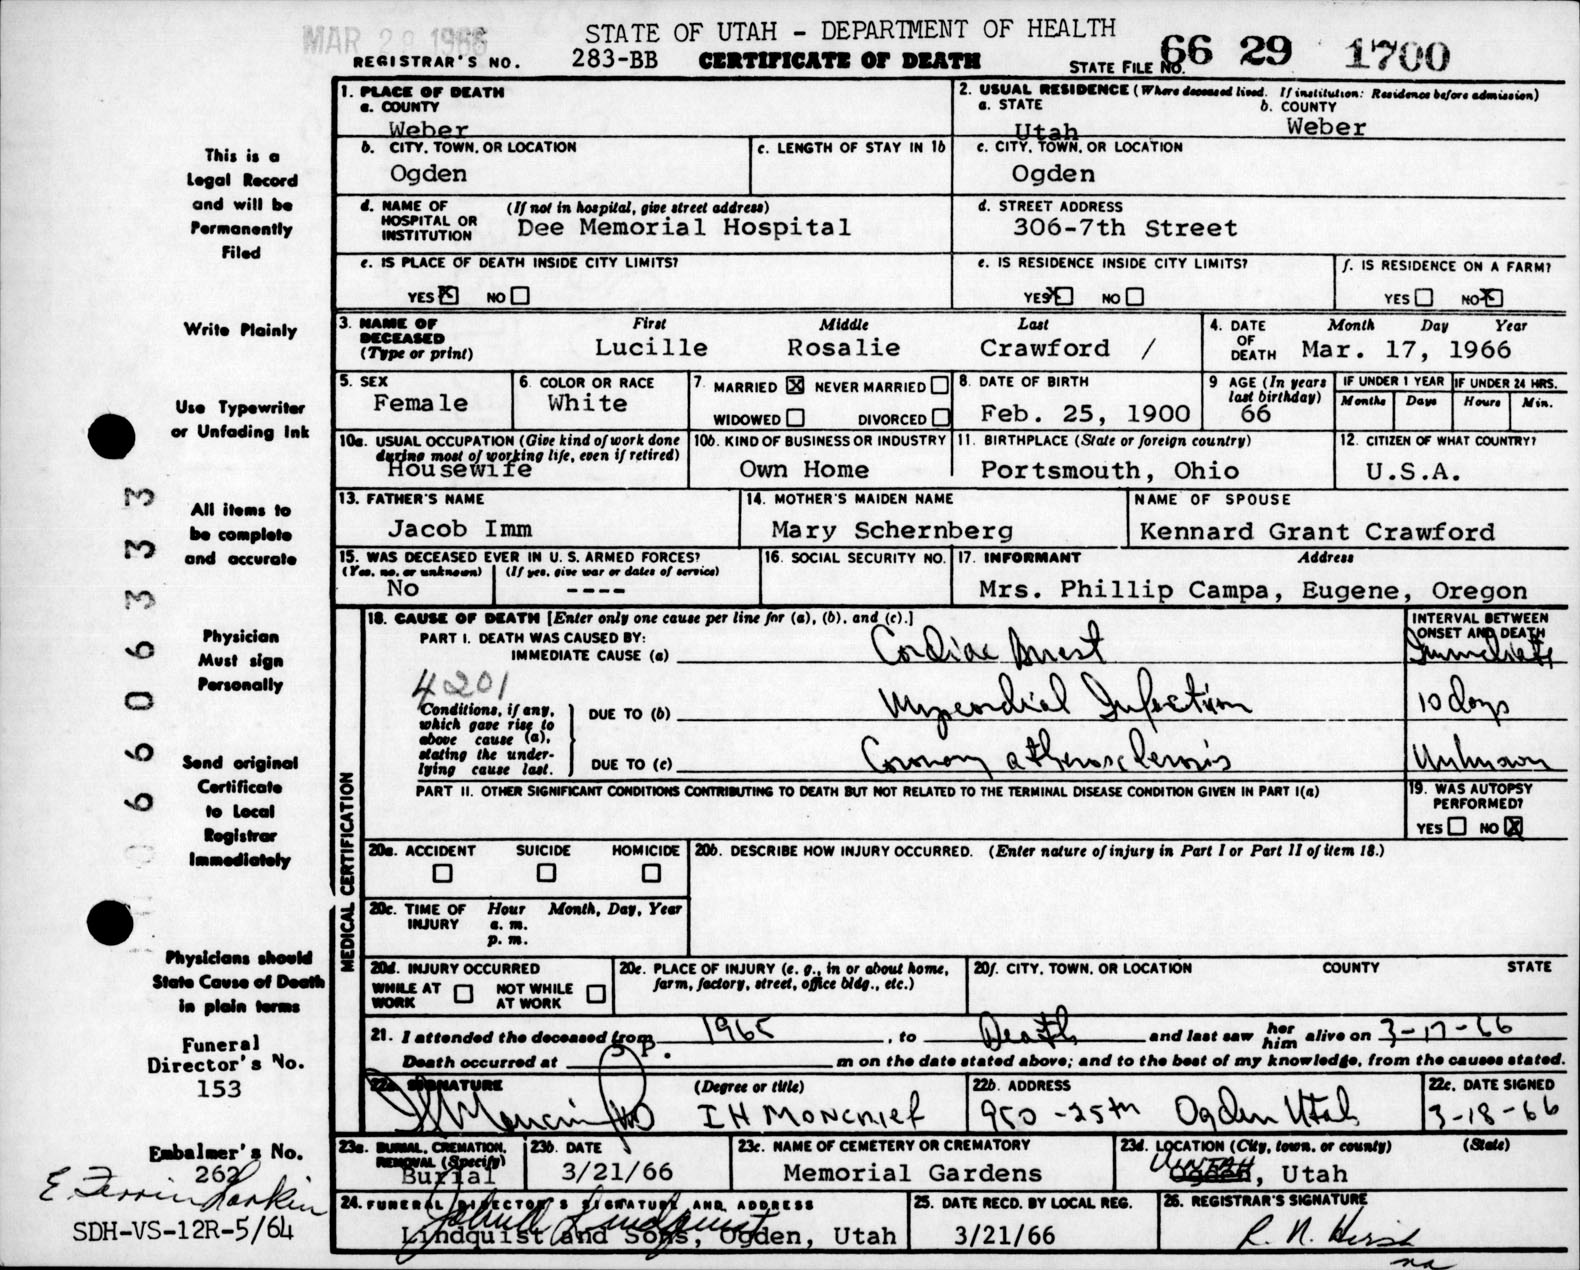 MAR 28 1966
STATE OF UTAH - DEPARTMENT OF HEALTH
REGISTRAR'S NO. 283-BB CERTIFICATE OF DEATH STATE FILE NO. 66 29 1700
1. PLACE OF DEATH
a. COUNTY
Weber
2. USUAL RESIDENCE (Where deceased lived. If institution: Residence before admission)
a. STATE b. COUNTY
Utah Weber
b. CITY, TOWN, OR LOCATION
Ogden
c. LENGTH OF STAY IN 1b
c. CITY, TOWN, OR LOCATION
Ogden
d. NAME OF HOSPITAL OR INSTITUTION (If not in hospital, give street address)
Dee Memorial Hospital
d. STREET ADDRESS
306-7th Street
e. IS PLACE OF DEATH INSIDE CITY LIMITS?
YES X NO
e. IS RESIDENCE INSIDE CITY LIMITS?
YES X NO
f. IS RESIDENCE ON A FARM?
YES NO X
3. NAME OF DECEASED (Type or print)
First Middle Last
Lucille Rosalie Crawford /
4. DATE OF DEATH Month Day Year
Mar. 17, 1966
5. SEX
Female
6. COLOR OR RACE
White
7. MARRIED X NEVER MARRIED
WIDOWED DIVORCED
8. DATE OF BIRTH
Feb. 25, 1900
9 AGE (In years last birthday)
66
IF UNDER 1 YEAR
Months Days
IF UNDER 24 HRS.
Hours Min.
10a. USUAL OCCUPATION (Give kind of work done
during most of working life, even if retired)
Housewife
10b. KIND OF BUSINESS OR INDUSTRY
Own Home
11. BIRTHPLACE (State or foreign country)
Portsmouth, Ohio
12. CITIZEN OF WHAT COUNTRY?
U.S.A.
13. FATHER'S NAME
Jacob Imm
14. MOTHER'S MAIDEN NAME
Mary Schernberg
NAME OF SPOUSE
Kennard Grant Crawford
15. WAS DECEASED EVER IN U. S. ARMED FORCES?
(Yes, no, or unknown) (If yes, give war or dates of service)
No ----
16. SOCIAL SECURITY NO.
17. INFORMANT Address
Mrs. Phillip Campa, Eugene, Oregon
MEDICAL CERTIFICATION
18. CAUSE OF DEATH [Enter only one cause per line for (a), (b), and (c).]
INTERVAL BETWEEN ONSET AND DEATH
PART I. DEATH WAS CAUSED BY:
IMMEDIATE CAUSE (a) Cardiac Arrest Immediate
4201
Conditions, if any,
which gave rise to
above cause (a),
stating the under-
lying cause last.
DUE TO (b) Myocardial Infarction 10 days
DUE TO (c) Coronary atherosclerosis Unknown
PART II. OTHER SIGNIFICANT CONDITIONS CONTRIBUTING TO DEATH BUT NOT RELATED TO THE TERMINAL DISEASE CONDITION GIVEN IN PART I(a)
19. WAS AUTOPSY PERFORMED?
YES NO X
20a. ACCIDENT SUICIDE HOMICIDE
20b. DESCRIBE HOW INJURY OCCURRED. (Enter nature of injury in Part I or Part II of item 18.)
20c. TIME OF INJURY Hour Month, Day, Year
a. m.
p. m.
20d. INJURY OCCURRED
WHILE AT WORK NOT WHILE AT WORK
20e. PLACE OF INJURY (e. g., in or about home,
farm, factory, street, office bldg., etc.)
20f. CITY, TOWN, OR LOCATION COUNTY STATE
21. I attended the deceased from 1965, to Death and last saw her him alive on 3-17-66
Death occurred at 5 P. m on the date stated above; and to the best of my knowledge, from the causes stated.
22a. SIGNATURE (Degree or title)
I H Moncrief
22b. ADDRESS
950 - 25th Ogden Utah
22c. DATE SIGNED
3-18-66
23a. BURIAL, CREMATION, REMOVAL (Specify)
Burial
23b. DATE
3/21/66
23c. NAME OF CEMETERY OR CREMATORY
Memorial Gardens
23d. LOCATION (City, town, or county) (State)
Uintah Ogden, Utah
24. FUNERAL DIRECTOR'S SIGNATURE AND ADDRESS
Lindquist and Sons, Ogden, Utah
25. DATE RECD. BY LOCAL REG.
3/21/66
26. REGISTRAR'S SIGNATURE
This is a
Legal Record
and will be
Permanently
Filed
Write Plainly
Use Typewriter
or Unfading Ink
All items to
be complete
and accurate
Physician
Must sign
Personally
Send original
Certificate
to Local
Registrar
Immediately
Physicians should
State Cause of Death
in plain terms
Funeral
Director's No.
153
Embalmer's No.
262
E. Ferrin Larkin
SDH-VS-12R-5/64
6606333